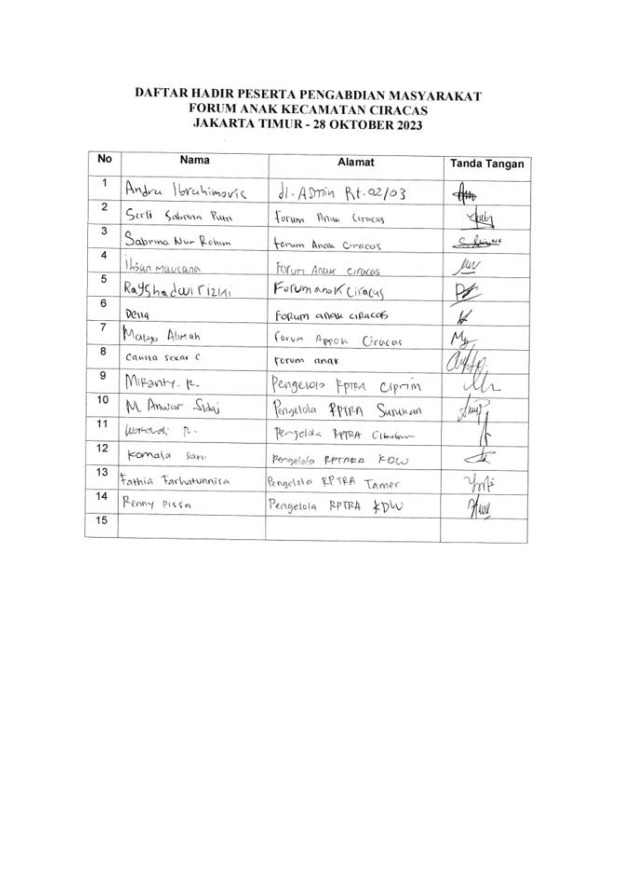 DAFTAR HADIR PESERTA PENGABDIAN MASYARAKAT
FORUM ANAK KECAMATAN CIRACAS
JAKARTA TIMUR - 28 OKTOBER 2023
No Nama Alamat Tanda Tangan
1 Andra Ibrahimovic Jl. Asmin Rt. 02/03
2 Serli Sabrina Forum Anak Ciracas
3 Sabrina Nur Rohim Forum Anak Ciracas
4 Ihsan Maulana Forum Anak Ciracas
5 Rayshadwi rizki Forum anak Ciracas
6 Della Forum anak CIRACAS
7 Alimah Forum Ciracas
8 sekar C Forum anak
9 Miranty. R. Pengelola RPTRA
10 M Anwar Pengelola RPTRA Susukan
11 R. Pengelola RPTRA Cibubur
12 Komala Sari Pengelola KDW
13 Fathia Farhatunnisa Pengelola RPTRA Tamer
14 Renny Dissa Pengelola RPTRA KDW
15